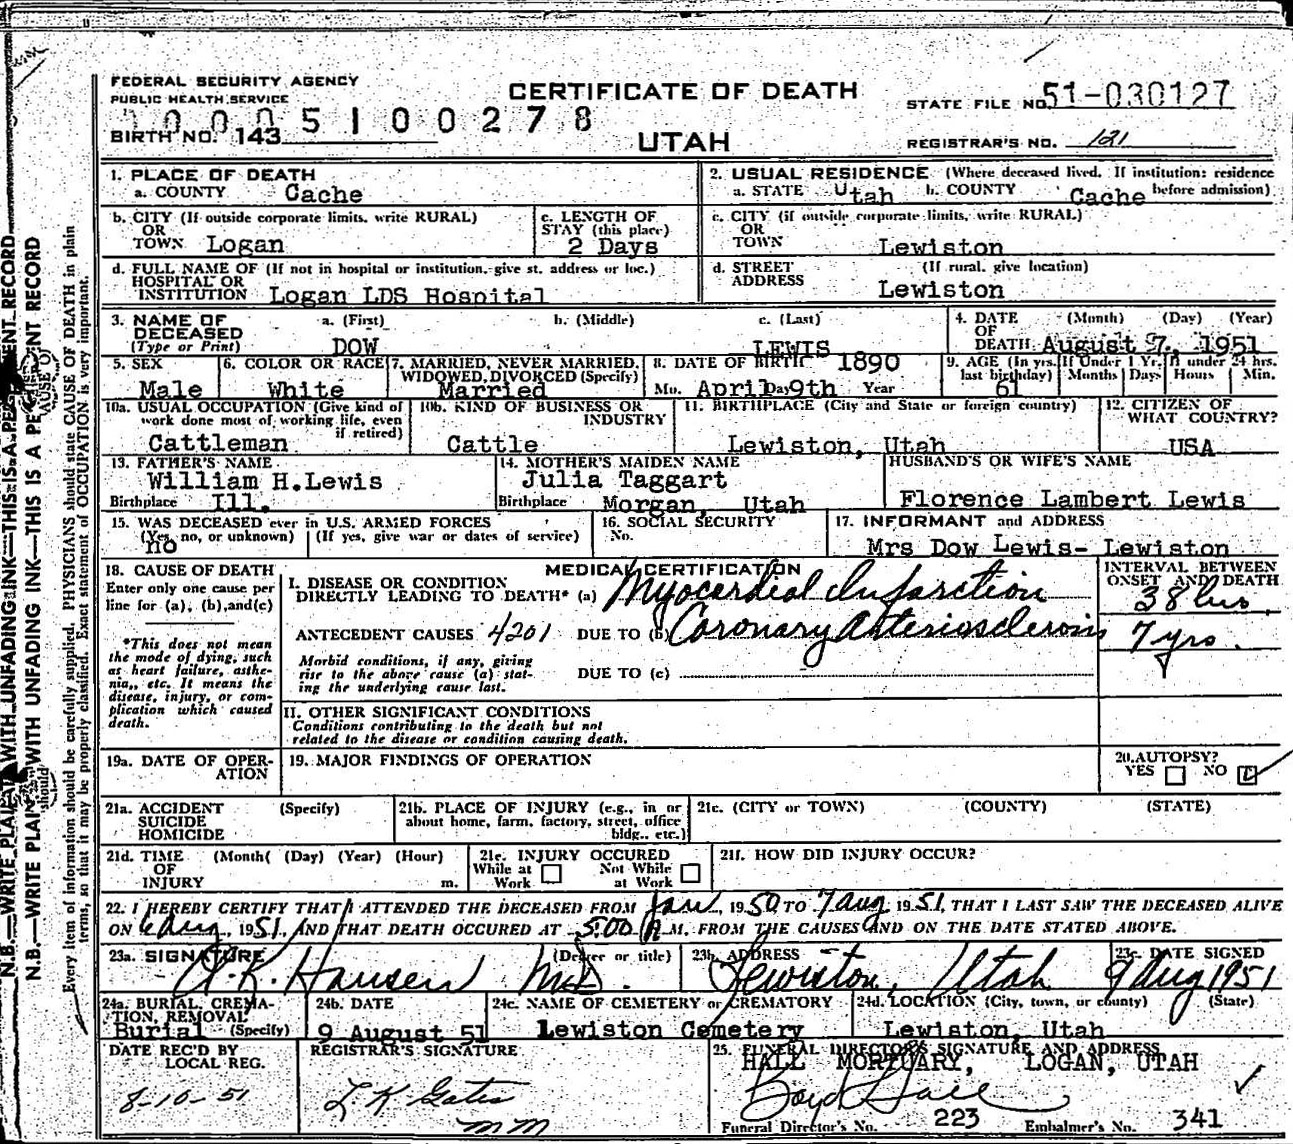 FEDERAL SECURITY AGENCY
PUBLIC HEALTH SERVICE
CERTIFICATE OF DEATH
STATE FILE NO. 51-030127
0005100278
BIRTH NO. 143
UTAH
REGISTRAR'S NO. 121
1. PLACE OF DEATH
a. COUNTY Cache
2. USUAL RESIDENCE (Where deceased lived. If institution: residence before admission)
a. STATE Utah b. COUNTY Cache
b. CITY (If outside corporate limits, write RURAL)
OR
TOWN Logan
c. LENGTH OF
STAY (this place)
2 Days
c. CITY (if outside corporate limits, write RURAL)
OR
TOWN Lewiston
d. FULL NAME OF (If not in hospital or institution, give st. address or loc.)
HOSPITAL OR
INSTITUTION Logan LDS Hospital
d. STREET (If rural, give location)
ADDRESS Lewiston
3. NAME OF a. (First) b. (Middle) c. (Last)
DECEASED
(Type or Print) DOW LEWIS
4. DATE (Month) (Day) (Year)
OF
DEATH August 7, 1951
5. SEX
Male
6. COLOR OR RACE
White
7. MARRIED, NEVER MARRIED,
WIDOWED, DIVORCED (Specify)
Married
8. DATE OF BIRTH 1890
Mo. April Day 9th Year
9. AGE (In yrs. last birthday) 61
If Under 1 Yr. Months Days
If under 24 hrs. Hours Min.
10a. USUAL OCCUPATION (Give kind of
work done most of working life, even
if retired)
Cattleman
10b. KIND OF BUSINESS OR
INDUSTRY
Cattle
11. BIRTHPLACE (City and State or foreign country)
Lewiston, Utah
12. CITIZEN OF
WHAT COUNTRY?
USA
13. FATHER'S NAME
William H.Lewis
Birthplace Ill.
14. MOTHER'S MAIDEN NAME
Julia Taggart
Birthplace Morgan, Utah
HUSBAND'S OR WIFE'S NAME
Florence Lambert Lewis
15. WAS DECEASED ever in U.S. ARMED FORCES
(Yes, no, or unknown) (If yes, give war or dates of service)
no
16. SOCIAL SECURITY
No.
17. INFORMANT and ADDRESS
Mrs Dow Lewis- Lewiston
18. CAUSE OF DEATH
Enter only one cause per
line for (a), (b), and (c)
*This does not mean
the mode of dying, such
as heart failure, asthe-
nia, etc. It means the
disease, injury, or com-
plication which caused
death.
MEDICAL CERTIFICATION
I. DISEASE OR CONDITION
DIRECTLY LEADING TO DEATH* (a) Myocardial Infarction
ANTECEDENT CAUSES 4201 DUE TO (b) Coronary Arteriosclerosis
Morbid conditions, if any, giving
rise to the above cause (a) stat-
ing the underlying cause last.
DUE TO (c)
II. OTHER SIGNIFICANT CONDITIONS
Conditions contributing to the death but not
related to the disease or condition causing death.
INTERVAL BETWEEN
ONSET AND DEATH
38 hrs.
7 yrs.
19a. DATE OF OPER-
ATION
19. MAJOR FINDINGS OF OPERATION
20. AUTOPSY?
YES NO
21a. ACCIDENT (Specify)
SUICIDE
HOMICIDE
21b. PLACE OF INJURY (e.g., in or
about home, farm, factory, street, office
bldg., etc.)
21c. (CITY or TOWN) (COUNTY) (STATE)
21d. TIME (Month( (Day) (Year) (Hour)
OF
INJURY m.
21e. INJURY OCCURED
While at Work Not While at Work
21f. HOW DID INJURY OCCUR?
22. I HEREBY CERTIFY THAT I ATTENDED THE DECEASED FROM Jan, 1950 TO 7 Aug 1951, THAT I LAST SAW THE DECEASED ALIVE
ON 6 Aug, 1951, AND THAT DEATH OCCURED AT 5:00 A.M, FROM THE CAUSES AND ON THE DATE STATED ABOVE.
23a. SIGNATURE (Degree or title)
A.K. Hansen M.D.
23b. ADDRESS
Lewiston, Utah
23c. DATE SIGNED
9 Aug 1951
24a. BURIAL, CREMA-
TION, REMOVAL
Burial (Specify)
24b. DATE
9 August 51
24c. NAME OF CEMETERY or CREMATORY
Lewiston Cemetery
24d. LOCATION (City, town, or county) (State)
Lewiston, Utah
DATE REC'D BY
LOCAL REG.
8-10-51
REGISTRAR'S SIGNATURE
L K Gates
mm
25. FUNERAL DIRECTOR'S SIGNATURE AND ADDRESS
HALL MORTUARY, LOGAN, UTAH
Boyd Hall
Funeral Director's No. 223 Embalmer's No. 341
N.B.—WRITE PLAIN WITH UNFADING INK—THIS IS A PERMANENT RECORD
N.B.—WRITE PLAIN WITH UNFADING INK—THIS IS A PERMANENT RECORD
Every item of information should be carefully supplied. PHYSICIANS should state CAUSE OF DEATH in plain
terms, so that it may be properly classified. Exact statement of OCCUPATION is very important.